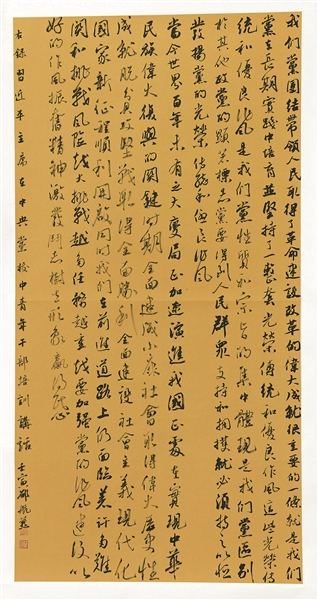 我们党团结带领人民取得了革命建设改革的伟大成就很重要的一条就是我们
党在长期实践中培育并坚持了一整套光荣传统和优良作风这些光荣传
统和优良作风是我们党性质和宗旨的集中体现是我们党区别
于其他政党的显著标志党要得到人民群众支持和拥护就必须持之以恒
发扬党的光荣传统和优良作风
当今世界百年未有之大变局正加速演进我国正处在实现中华
民族伟大复兴的关键时期全面建成小康社会取得伟大历史性
成就脱贫攻坚战取得全面胜利全面建设社会主义现代化
国家新征程顺利开启同时我们在前进道路上仍面临着许多难
关和挑战风险越大挑战越多任务越重越要加强党的作风建设以
好的作风振奋精神激发斗志树立形象赢得民心
右录习近平主席在中央党校中青年干部培训讲话 壬寅